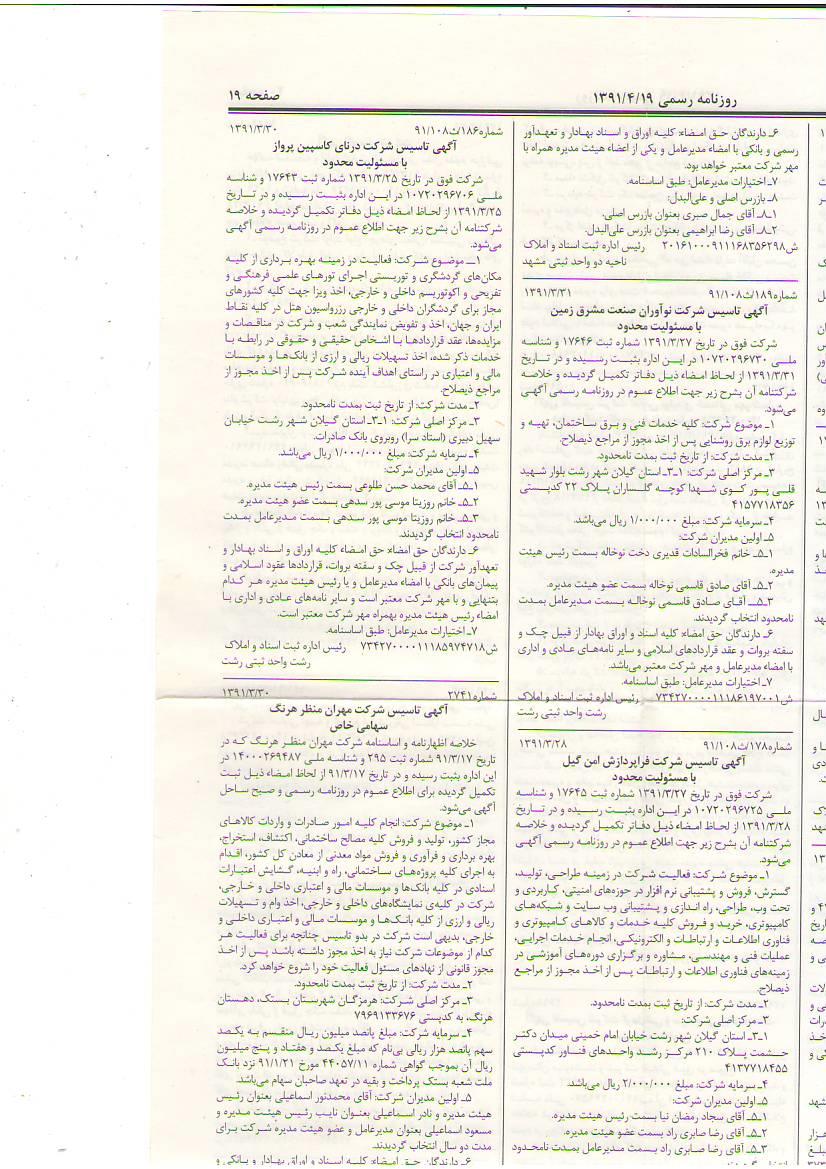 روزنامه رسمی ۱۳۹۱/۴/۱۹
صفحه ۱۹
۶ـ دارندگان حق امضاء: کلیه اوراق و اسناد بهادار و تعهدآور
رسمی و بانکی با امضاء مدیرعامل و یکی از اعضاء هیئت مدیره همراه با
مهر شرکت معتبر خواهد بود.
۷ـ اختیارات مدیرعامل: طبق اساسنامه.
۸ـ بازرس اصلی و علی‌البدل:
۸ـ۱ـ آقای جمال صبری بعنوان بازرس اصلی.
۸ـ۲ـ آقای رضا ابراهیمی بعنوان بازرس علی‌البدل.
ش۲۰۱۶۱۰۰۰۹۱۱۱۶۸۳۵۶۲۹۸ رئیس اداره ثبت اسناد و املاک
ناحیه دو واحد ثبتی مشهد
شماره۱۸۹/ث۹۱/۱۰۸ ۱۳۹۱/۳/۳۱
آگهی تاسیس شرکت نوآوران صنعت مشرق زمین
با مسئولیت محدود
شرکت فوق در تاریخ ۱۳۹۱/۳/۲۷ شماره ثبت ۱۷۶۴۶ و شناسه
ملی ۱۰۷۲۰۲۹۶۷۳۰ در این اداره بثبت رسیده و در تاریخ
۱۳۹۱/۳/۳۱ از لحاظ امضاء ذیل دفاتر تکمیل گردیده و خلاصه
شرکتنامه آن بشرح زیر جهت اطلاع عموم در روزنامه رسمی آگهی
می‌شود.
۱ـ موضوع شرکت: کلیه خدمات فنی و برق ساختمان، تهیه و
توزیع لوازم برق روشنایی پس از اخذ مجوز از مراجع ذیصلاح.
۲ـ مدت شرکت: از تاریخ ثبت بمدت نامحدود.
۳ـ مرکز اصلی شرکت: ۳ـ۱ـ استان گیلان شهر رشت بلوار شهید
قلی پور کوی شهدا کوچه گلساران پلاک ۲۲ کدپستی
۴۱۵۷۷۱۸۳۵۶
۴ـ سرمایه شرکت: مبلغ ۱/۰۰۰/۰۰۰ ریال می‌باشد.
۵ـ اولین مدیران شرکت:
۵ـ۱ـ خانم فخرالسادات قدیری دخت نوخاله بسمت رئیس هیئت
مدیره.
۵ـ۲ـ آقای صادق قاسمی نوخاله بسمت عضو هیئت مدیره.
۵ـ۳ـ آقای صادق قاسمی نوخاله بسمت مدیرعامل بمدت
نامحدود انتخاب گردیدند.
۶ـ دارندگان حق امضاء: کلیه اسناد و اوراق بهادار از قبیل چک و
سفته بروات و عقد قراردادهای اسلامی و سایر نامه‌های عادی و اداری
با امضاء مدیرعامل و مهر شرکت معتبر می‌باشد.
۷ـ اختیارات مدیرعامل: طبق اساسنامه.
ش۷۳۴۲۷۰۰۰۰۱۱۱۸۶۱۹۷۰۰۱ رئیس اداره ثبت اسناد و املاک
رشت واحد ثبتی رشت
شماره۱۷۸/ث۹۱/۱۰۸ ۱۳۹۱/۳/۲۸
آگهی تاسیس شرکت فراپردازش امن گیل
با مسئولیت محدود
شرکت فوق در تاریخ ۱۳۹۱/۳/۲۷ شماره ثبت ۱۷۶۴۵ و شناسه
ملی ۱۰۷۲۰۲۹۶۷۲۵ در این اداره بثبت رسیده و در تاریخ
۱۳۹۱/۳/۲۸ از لحاظ امضاء ذیل دفاتر تکمیل گردیده و خلاصه
شرکتنامه آن بشرح زیر جهت اطلاع عموم در روزنامه رسمی آگهی
می‌شود.
۱ـ موضوع شرکت: فعالیت شرکت در زمینه طراحی، تولید،
گسترش، فروش و پشتیبانی نرم افزار در حوزه‌های امنیتی، کاربردی و
تحت وب، طراحی، راه اندازی و پشتیبانی وب سایت و شبکه‌های
کامپیوتری، خرید و فروش کلیه خدمات و کالاهای کامپیوتری و
فناوری اطلاعات و ارتباطات و الکترونیکی، انجام خدمات اجرایی،
عملیات فنی و مهندسی، مشاوره و برگزاری دوره‌های آموزشی در
زمینه‌های فناوری اطلاعات و ارتباطات پس از اخذ مجوز از مراجع
ذیصلاح.
۲ـ مدت شرکت: از تاریخ ثبت بمدت نامحدود.
۳ـ مرکز اصلی شرکت:
۳ـ۱ـ استان گیلان شهر رشت خیابان امام خمینی میدان دکتر
حشمت پلاک ۲۱۰ مرکز رشد واحدهای فناور کدپستی
۴۱۳۷۷۱۸۴۵۵
۴ـ سرمایه شرکت: مبلغ ۲/۰۰۰/۰۰۰ ریال می‌باشد.
۵ـ اولین مدیران شرکت:
۵ـ۱ـ آقای سجاد رمضان نیا بسمت رئیس هیئت مدیره.
۵ـ۲ـ آقای رضا صابری راد بسمت عضو هیئت مدیره.
۵ـ۳ـ آقای رضا صابری راد بسمت مدیرعامل بمدت نامحدود
شماره۱۸۶/ث۹۱/۱۰۸ ۱۳۹۱/۳/۳۰
آگهی تاسیس شرکت درنای کاسپین پرواز
با مسئولیت محدود
شرکت فوق در تاریخ ۱۳۹۱/۳/۲۵ شماره ثبت ۱۷۶۴۳ و شناسه
ملی ۱۰۷۲۰۲۹۶۷۰۶ در این اداره بثبت رسیده و در تاریخ
۱۳۹۱/۳/۲۵ از لحاظ امضاء ذیل دفاتر تکمیل گردیده و خلاصه
شرکتنامه آن بشرح زیر جهت اطلاع عموم در روزنامه رسمی آگهی
می‌شود.
۱ـ موضوع شرکت: فعالیت در زمینه بهره برداری از کلیه
مکان‌های گردشگری و توریستی اجرای تورهای علمی فرهنگی و
تفریحی و اکوتوریسم داخلی و خارجی، اخذ ویزا جهت کلیه کشورهای
مجاز برای گردشگران داخلی و خارجی رزرواسیون هتل در کلیه نقاط
ایران و جهان، اخذ و تفویض نمایندگی شعب و شرکت در مناقصات و
مزایده‌ها، عقد قراردادها با اشخاص حقیقی و حقوقی در رابطه با
خدمات ذکر شده، اخذ تسهیلات ریالی و ارزی از بانک‌ها و موسسات
مالی و اعتباری در راستای اهداف آینده شرکت پس از اخذ مجوز از
مراجع ذیصلاح.
۲ـ مدت شرکت: از تاریخ ثبت بمدت نامحدود.
۳ـ مرکز اصلی شرکت: ۳ـ۱ـ استان گیلان شهر رشت خیابان
سهیل دبیری (استاد سرا) روبروی بانک صادرات.
۴ـ سرمایه شرکت: مبلغ ۱/۰۰۰/۰۰۰ ریال می‌باشد.
۵ـ اولین مدیران شرکت:
۵ـ۱ـ آقای محمد حسن طلوعی بسمت رئیس هیئت مدیره.
۵ـ۲ـ خانم روزیتا موسی پور سدهی بسمت عضو هیئت مدیره.
۵ـ۳ـ خانم روزیتا موسی پور سدهی بسمت مدیرعامل بمدت
نامحدود انتخاب گردیدند.
۶ـ دارندگان حق امضاء: حق امضاء کلیه اوراق و اسناد بهادار و
تعهدآور شرکت از قبیل چک و سفته بروات، قراردادها عقود اسلامی و
پیمان‌های بانکی با امضاء مدیرعامل و یا رئیس هیئت مدیره هر کدام
بتنهایی و با مهر شرکت معتبر است و سایر نامه‌های عادی و اداری با
امضاء رئیس هیئت مدیره بهمراه مهر شرکت معتبر است.
۷ـ اختیارات مدیرعامل: طبق اساسنامه.
ش۷۳۴۲۷۰۰۰۰۱۱۱۸۵۹۷۴۷۱۸ رئیس اداره ثبت اسناد و املاک
رشت واحد ثبتی رشت
شماره۲۷۴۱ ۱۳۹۱/۳/۳۰
آگهی تاسیس شرکت مهران منظر هرنگ
سهامی خاص
خلاصه اظهارنامه و اساسنامه شرکت مهران منظر هرنگ که در
تاریخ ۹۱/۳/۱۷ شماره ثبت ۲۹۵ و شناسه ملی ۱۴۰۰۰۲۶۹۴۸۷ در
این اداره بثبت رسیده و در تاریخ ۹۱/۳/۱۷ از لحاظ امضاء ذیل ثبت
تکمیل گردیده برای اطلاع عموم در روزنامه رسمی و صبح ساحل
آگهی می‌شود.
۱ـ موضوع شرکت: انجام کلیه امور صادرات و واردات کالاهای
مجاز کشور، تولید و فروش کلیه مصالح ساختمانی، اکتشاف، استخراج،
بهره برداری و فرآوری و فروش مواد معدنی از معادن کل کشور، اقدام
به اجرای کلیه پروژه‌های ساختمانی، راه و ابنیه، گشایش اعتبارات
اسنادی در کلیه بانک‌ها و موسسات مالی و اعتباری داخلی و خارجی،
شرکت در کلیه‌ی نمایشگاه‌های داخلی و خارجی، اخذ وام و تسهیلات
ریالی و ارزی از کلیه بانک‌ها و موسسات مالی و اعتباری داخلی و
خارجی، بدیهی است شرکت در بدو تاسیس چنانچه برای فعالیت هر
کدام از موضوعات شرکت نیاز به اخذ مجوز داشته باشد پس از اخذ
مجوز قانونی از نهادهای مسئول فعالیت خود را شروع خواهد کرد.
۲ـ مدت شرکت: از تاریخ ثبت بمدت نامحدود.
۳ـ مرکز اصلی شرکت: هرمزگان شهرستان بستک، دهستان
هرنگ، به کدپستی ۷۹۶۹۱۳۳۶۷۶
۴ـ سرمایه شرکت: مبلغ پانصد میلیون ریال منقسم به یکصد
سهم پانصد هزار ریالی بی‌نام که مبلغ یکصد و هفتاد و پنج میلیون
ریال آن بموجب گواهی شماره ۴۴۰۵۷/۱۱ مورخ ۹۱/۱/۲۱ نزد بانک
ملت شعبه بستک پرداخت و بقیه در تعهد صاحبان سهام می‌باشد.
۵ـ اولین مدیران شرکت: آقای محمدنور اسماعیلی بعنوان رئیس
هیئت مدیره و نادر اسماعیلی بعنوان نایب رئیس هیئت مدیره و
مسعود اسماعیلی بعنوان مدیرعامل و عضو هیئت مدیره شرکت برای
مدت دو سال انتخاب گردیدند.
۶ـ دارندگان حق امضاء: کلیه اسناد و اوراق بهادار و بانکی و